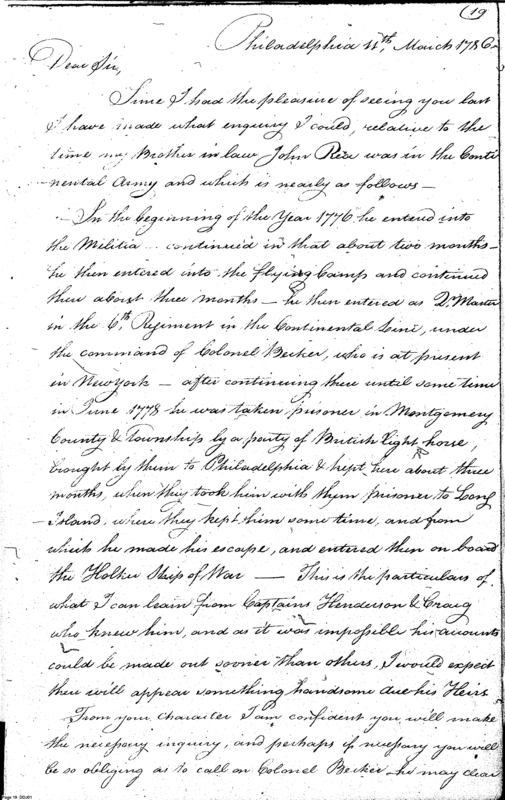 (19
Philadelphia 11th March 1786
Dear Sir,
Since I had the pleasure of seeing you last
I have made what enquiry I could, relative to the
time my Brother in law John Rice was in the Conti
nental Army and which is nearly as follows —
— In the beginning of the Year 1776 he entered into
the Militia continued in that about two months —
he then entered into the flying Camp and continued
there about three months — he then entered as Qr Master
in the 6th Regiment in the Continental Line, under
the command of Colonel Becker, who is at present
in New York — after continuing there until some time
in June 1778 he was taken prisoner in Montgomery
County & Township by a party of British light horse,
brought by them to Philadelphia & kept here about three
months, when they took him with them prisoner to Long
Island, where they kept him some time, and from
which he made his escape, and entered then on board
the Holker Ship of War — This is the particulars of
what I can learn from Captains Henderson & Craig
who knew him, and as it was impossible his accounts
could be made out sooner than others, I would expect
there will appear something handsome due his Heirs
From your character I am confident you will make
the necessary inquiry, and perhaps if necessary you will
be so obliging as to call on Colonel Becker — he may clear
Page 19